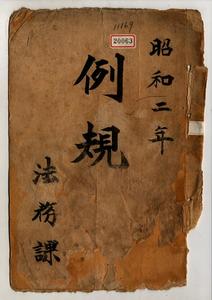 11169
20063
昭和二年
例規
法務課